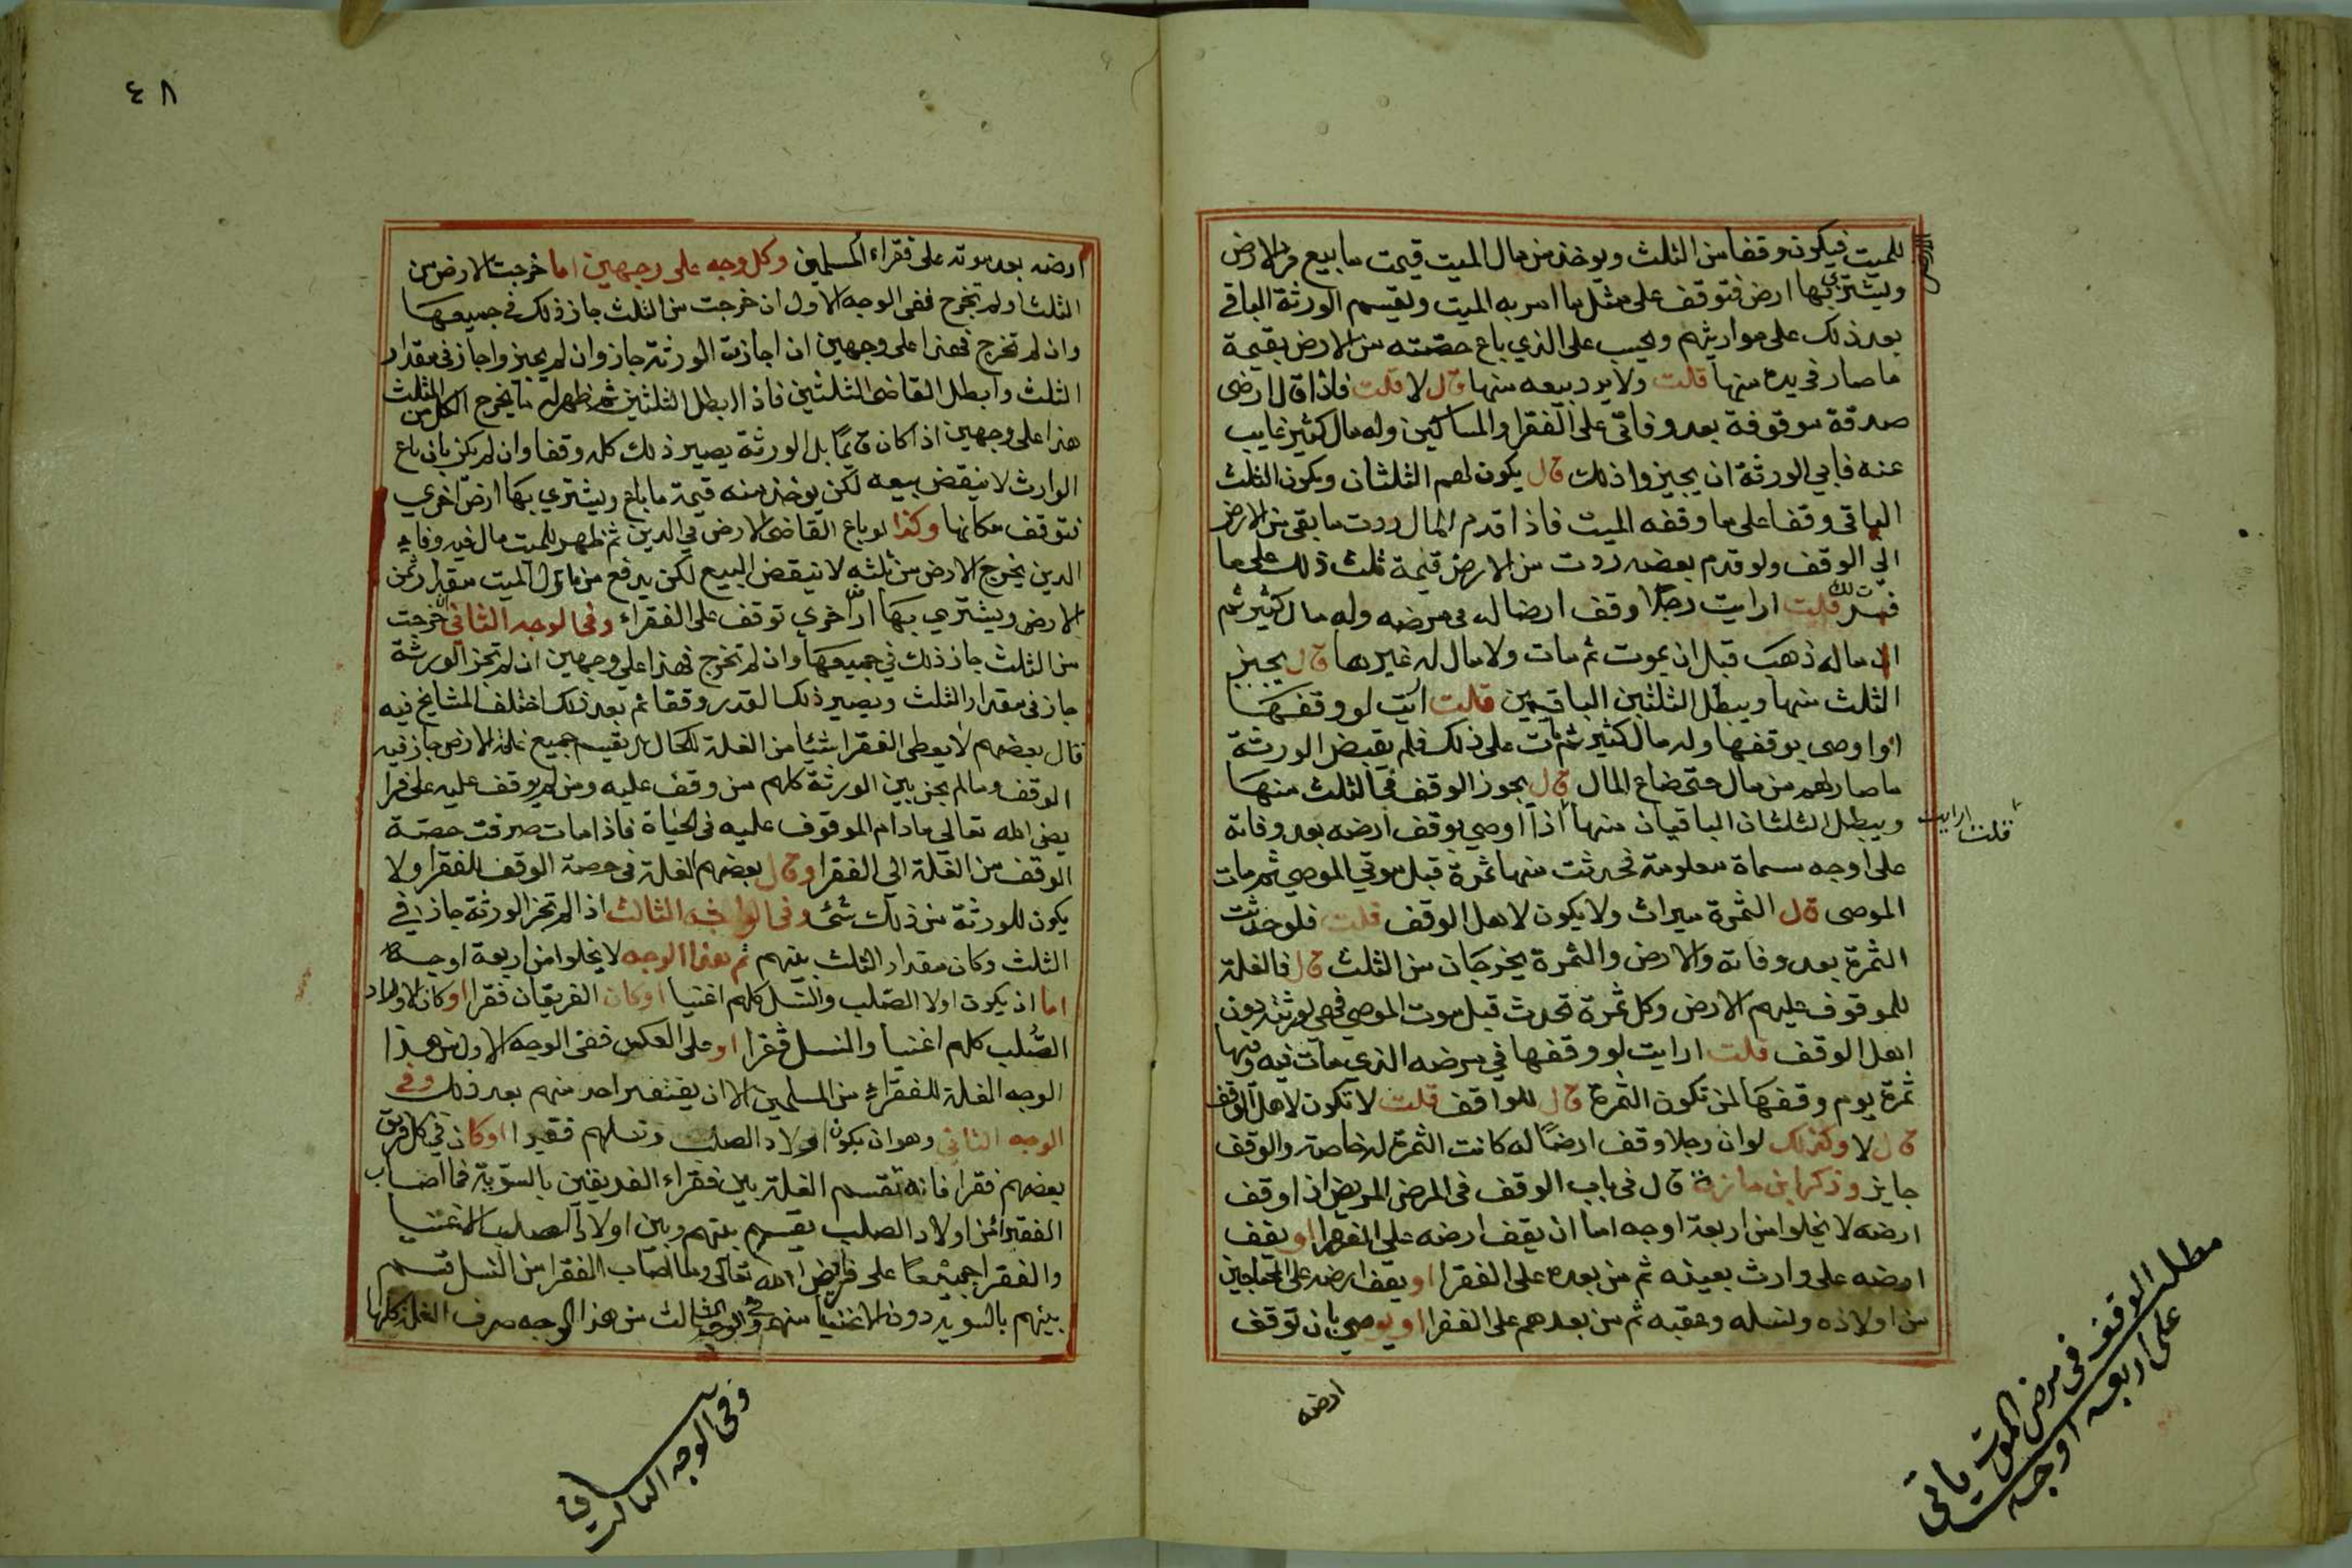 للميت فيكون وقفا من الثلث ويوخذ من مال الميت قيمت ما بيع من الارض
ويشترى بها ارض فتوقف على مثل ما امر به الميت ويقسم الورثة الباقي
بعد ذلك على مواريثهم ويحسب على الذي باع حصته من الارض بقيمة
ما صار في يده منها قلت ولا يرد بيعه منها قال لا قلت فاذا قال ارضى
صدقة موقوفة بعد وفاتى على الفقرا والمساكين وله مال كثير غايب
عنه فابي الورثة ان يجيزوا ذلك قال يكون لهم الثلثان ويكون الثلث
الباقى وقفا على ما وقفه الميت فاذا قدم المال ردت ما بقى من الارض
الي الوقف ولو قدم بعضه ردت من الارض قيمة ثلث ذلك على ما
قلت ارايت رجلا وقف ارضا له فى مرضه وله مال كثير ثم
ان ماله ذهب قبل ان يموت ثم مات ولا مال له غيرها قال يجيز
الثلث منها ويبطل الثلثين الباقيين قلت ارايت لو وقفها
او اوصى بوقفها وله مال كثير ثم مات على ذلك فلم يقبض الورثة
ما صار لهم من مال حتى ضاع المال قال يجوز الوقف في الثلث منها
ويبطل الثلثان الباقيان منها اذا اوصي بوقف ارضه بعد وفاته
قلت ارايت
على اوجه مسماة معلومة فحدثت منها ثمرة قبل موتي الموصي ثم مات
الموصى قال الثمرة ميراث ولا يكون لاهل الوقف قلت فلو حدثت
الثمرة بعد وفاته والارض والثمرة يخرجان من الثلث قال فالغلة
للموقوف عليهم الارض وكل ثمرة تحدث قبل موت الموصي فهي لورثته دون
اهل الوقف قلت ارايت لو وقفها في مرضه الذي مات فيه وفيها
ثمرة يوم وقفها لمن تكون الثمرة قال للواقف قلت لا تكون لاهل الوقف
قال لا وكذلك لو ان رجلا وقف ارضًا له كانت الثمرة له خاصة والوقف
جايز وذكر ابن مازة قال فى باب الوقف فى المرض المريض اذا وقف
ارضه لا يخلوا من اربعة اوجه اما ان يقف ارضه على الفقرا او يقف
ارضه على وارث بعينه ثم من بعده على الفقرا او يقف ارضه على المحتاجين
من اولاده ولنسله وعقبه ثم من بعدهم على الفقرا او يوصي بان توقف
ارضه
مطلب الوقف فى مرض الموت ياتى
على اربعه اوجه
٤٨
ارضه بعد موته على فقراء المسلمين وكل وجه على وجهين اما خرجت الارض من
الثلث او لم تخرج ففى الوجه الاول ان خرجت من الثلث جاز ذلك فى جميعها
وان لم تخرج فهذا على وجهين ان اجازت الورثة جاز وان لم يجيزوا جاز فى مقدار
الثلث وابطل القاضى الثلثين فاذا ابطل الثلثين ثم ظهر له ما يخرج الكل من الثلث
هذا على وجهين اذا كان قايمًا بل الورثة يصير ذلك كله وقفا وان لم يكن بان باع
الوارث لا ينقض بيعه لكن يوخذ منه قيمة ما باع ويشتري بها ارض اخري
فتوقف مكانها وكذا لو باع القاضى الارض في الدين ثم ظهر للميت مال فيه وفاء
الدين يخرج الارض من ثلثه لا ينقض البيع لكن يدفع من مال الميت مقدار ثمن
الارض ويشتري بها اخري توقف على الفقراء وفى الوجه الثانى ان خرجت
من الثلث جاز ذلك في جميعها وان لم تخرج فهذا علي وجهين ان لم تجز الورثة
جاز فى مقدار الثلث ويصير ذلك القدر وقفا ثم بعد ذلك اختلف المشايخ فيه
قال بعضهم لا يعطى الفقرا شيئا من الغلة للحال بل يقسم جميع غلة الارض جاز فيه
الوقف وما لم يجز بين الورثة كلهم من وقف عليه ومن لم يوقف عليه على فرا
يض الله تعالي ما دام الموقوف عليه فى الحياة فاذا مات صرفت حصة
الوقف من الغلة الى الفقرا وقال بعضهم الغلة فى حصة الوقف للفقرا ولا
يكون للورثة من ذلك شئ وفى الوجه الثالث اذا لم تجز الورثة جاز في
الثلث وكان مقدار الثلث بينهم ثم هذا الوجه لا يخلوا من اربعة اوجه
اما ان يكون اولاد الصلب والنسل كلهم اغنيا او كان الفريقان فقرا او كان الاولاد
الصلب كلهم اغنيا والنسل فقرا او على العكس ففى الوجه الاول من هذا
الوجه الغلة للفقراء من المسلمين الا ان يفتقر احد منهم بعد ذلك وفى
الوجه الثاني وهو ان يكون اولاد الصلب ونسلهم فقيرا او كان في كل فريق
بعضهم فقرا فانه تقسم الغلة بين فقراء الفريقين بالسوية فما اصاب
الفقير من اولاد الصلب يقسم بينهم وبين اولاد الصلب الاغنيا
والفقرا جميعًا على فرايض الله تعالى وما اصاب الفقرا من النسل قسم
بينهم بالسوية دون الاغنيا منهم وفي الوجه الثالث من هذا الوجه صرف الغلة كلها
وفى الوجه الثالث